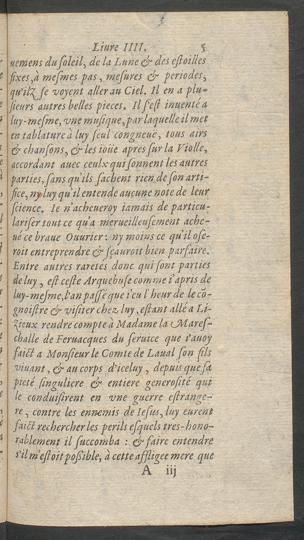 Liure IIII. 5
uemens du soleil, de la Lune & des estoilles
fixes, à mesmes pas, mesures & periodes,
qu'ilz se voyent aller au Ciel. Il en a plu-
sieurs autres belles pieces. Il s'est inuenté a
luy-mesme, vne musique, par laquelle il met
en tablature à luy seul congneuë, tous airs
& chansons, & les ioüe apres sur la Violle,
accordant auec ceulx qui sonnent les autres
parties, sans qu'ils sachent rien de son arti-
fice, ny luy qu'il entende aucune note de leur
science. Ie n'acheueroy iamais de particu-
lariser tout ce qu'a merueilleusement ache-
ué ce braue Ouurier: ny moins ce qu'il ose-
roit entreprendre & sçauroit bien parfaire.
Entre autres raretés donc qui sont parties
de luy, est ceste Arquebuse comme i'apris de
luy-mesme, l'an passé que i'eu l'heur de le cõ-
gnoistre & visiter chez luy, estant allé a Li-
zieux rendre compte à Madame la Mares-
challe de Feruacques du seruice que i'auoy
faict a Monsieur le Comte de Laual son fils
viuant, & au corps d'iceluy, depuis que sa
pieté singuliere & entiere generosité qui
le conduisirent en vne guerre estrange-
re, contre les ennemis de Iesus, luy eurent
faict rechercher les perils esquels tres-hono-
rablement il succomba: & faire entendre
s'il m'estoit possible, à cette affligee mere que
A iij